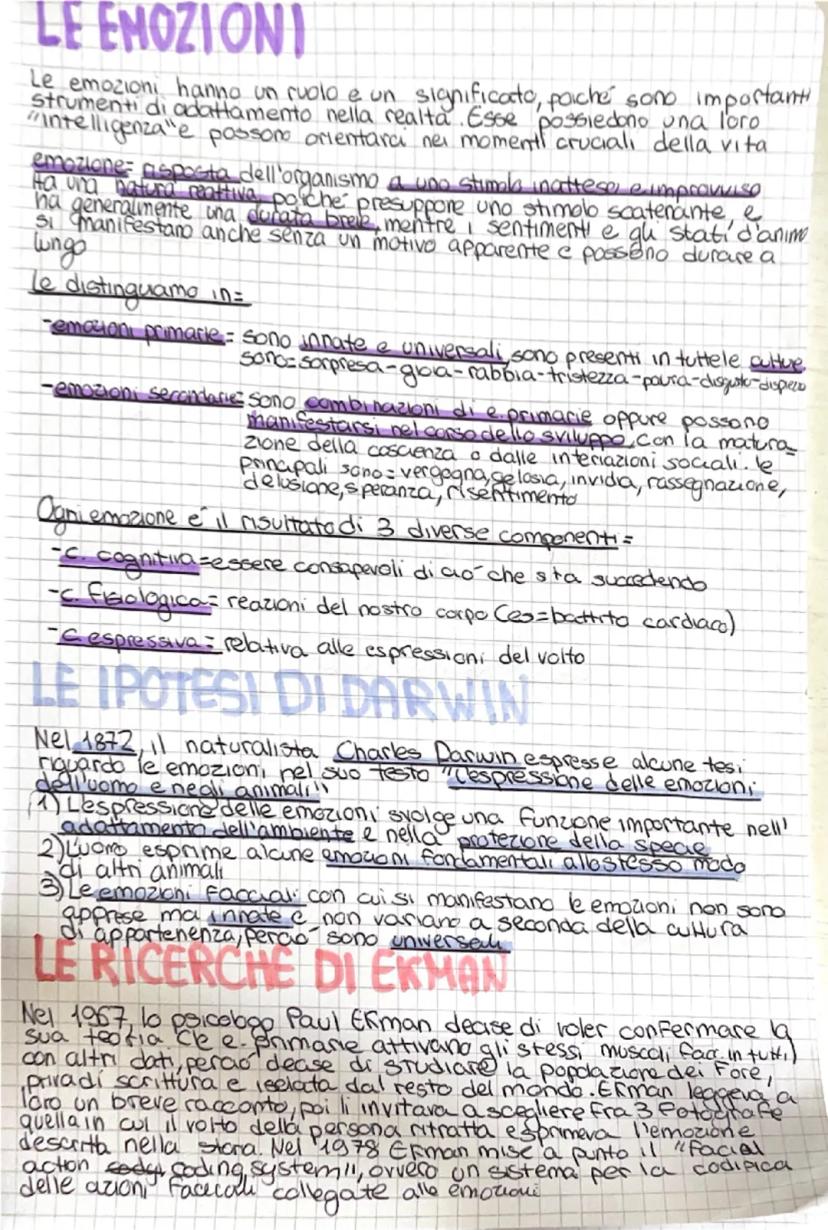 LE EMOZIONI
Le emozioni hanno un ruolo e un significato, poiché sono importanti
strumenti di adattamento nella realtà. Esse possiedono una loro
"intelligenza" e possono orientarci nei momenti cruciali della vita
emozione= risposta dell'organismo a uno stimolo inatteso e improvviso
Ha una natura reattiva, poiché presuppone uno stimolo scatenante, e
ha generalmente una durata breve, mentre i sentimenti e gli stati d'animo
si manifestano anche senza un motivo apparente e possono durare a
lungo
Le distinguiamo in=
-emozioni primarie= sono innate e universali, sono presenti in tutte le culture
sono=sorpresa-gioia-rabbia-tristezza-paura-disgusto-disprezzo
-emozioni secondarie= sono combinazioni di e. primarie oppure possono
manifestarsi nel corso dello sviluppo, con la matura=
zione della coscienza o dalle interiazioni sociali. le
principali sono= vergogna, gelosia, invidia, rassegnazione,
delusione, speranza, risentimento
Ogni emozione é il risultato di 3 diverse componenti=
-c. cognitiva=essere consapevoli di ciò che sta succedendo
-c. fisiologica= reazioni del nostro corpo (es=battito cardiaco)
-c espressiva= relativa alle espressioni del volto
LE IPOTESI DI DARWIN
Nel 1872, il naturalista Charles Darwin espresse alcune tesi
riguardo le emozioni nel suo testo "L'espressione delle emozioni
dell'uomo e negli animali"
1) L'espressione delle emozioni svolge una funzione importante nell'
adattamento dell'ambiente e nella protezione della specie
2) L'uomo esprime alcune emozioni fondamentali allo stesso modo
di altri animali
3) Le emozioni facciali con cui si manifestano le emozioni non sono
apprese ma innate e non variano a seconda della cultura
di appartenenza, perciò sono universali
LE RICERCHE DI EKMAN
Nel 1967 lo psicologo Paul Ekman decise di voler confermare la
sua teoria (le e. primarie attivano gli stessi muscoli facc. in tutti)
con altri dati, perciò decise di studiare la popolazione dei Fore,
priva di scrittura e isolata dal resto del mondo. Ekman leggeva a
loro un breve racconto, poi li invitava a scegliere fra 3 fotografe
quella in cui il volto della persona ritratta esprimeva l'emozione
descritta nella storia. Nel 1978 Ekman mise a punto il "facial
action coding system", ovvero un sistema per la codifica
delle azioni facciali collegate alle emozioni